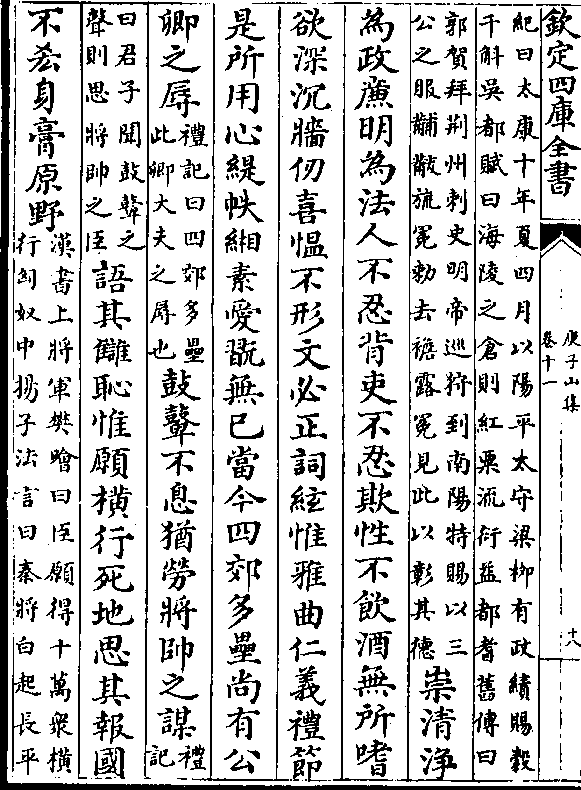 欽定四庫全書
庾子山集
卷十一
十八
紀曰太康十年夏四月以陽平太守梁柳有政績賜穀
千斛吳都賦曰海陵之倉則紅粟流衍益都耆舊傳曰
郭賀拜荆州刺史明帝巡狩到南陽特賜以三
公之服黼黻旒冕勅去襜露冕見此以彰其德
崇清浄
為政㢘明為法人不忍背吏不忍欺性不飲酒無所嗜
欲深沉牆仞喜愠不形文必正詞絃惟雅曲仁義禮節
是所用心緹帙緗素愛翫無已當今四郊多壘尚有公
卿之辱
禮記曰四郊多壘
此卿大夫之辱也
鼓鼙不息猶勞將帥之謀
禮
記
曰君子聞鼓鼙之
聲則思將帥之臣
語其讎恥惟願横行死地思其報國
不忘身膏原野
漢書上將軍樊噲曰臣願得十萬衆横
行匈奴中揚子法言曰秦將白起長平